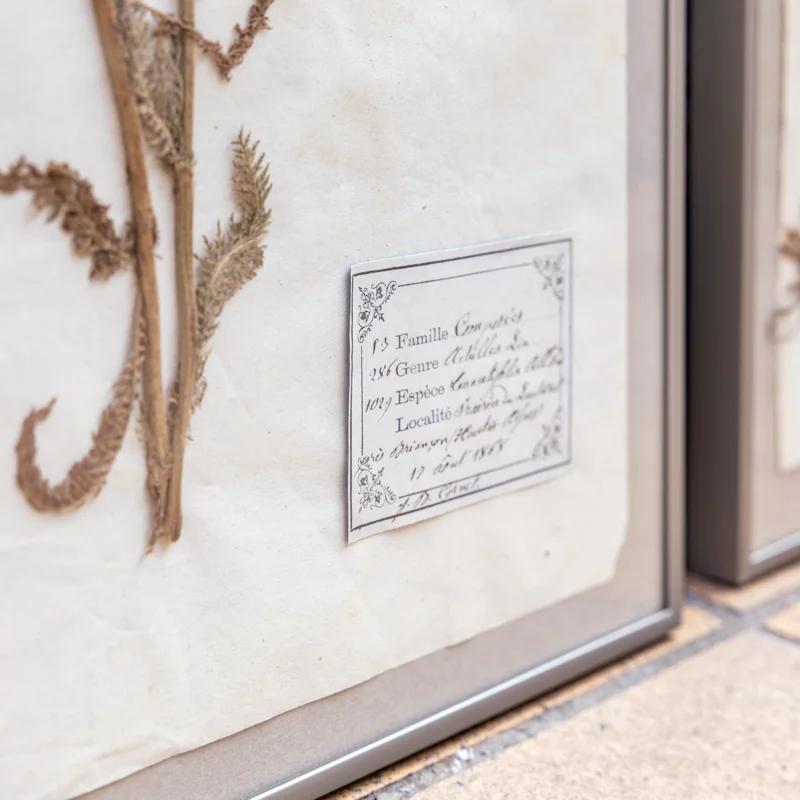 53 Famille Composées
286 Genre Achillea Lin.
1029 Espèce
Localité Prairies du Lautaret
près Briançon (Hautes-Alpes)
17 août 1868